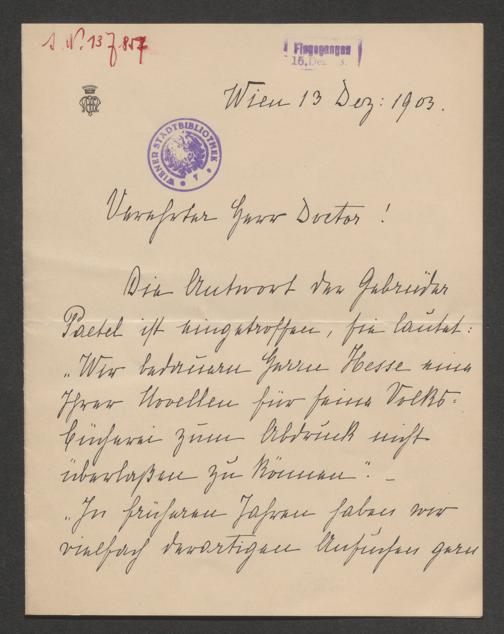 I. N. 137.857
Eingegangen
15. Dez.
Wien 13 Dez: 1903.
WIENER STADTBIBLIOTHEK
Verehrter Herr Doctor!
Die Antwort der Gebrüder
Paetel ist eingetroffen, sie lautet:
„Wir bedauern Herrn Hesse eine
Ihrer Novellen für seine Volks-
bücherei zum Abdruck nicht
überlaßen zu können". –
„In früheren Jahren haben wir
vielfach derartigen Ansuchen gern